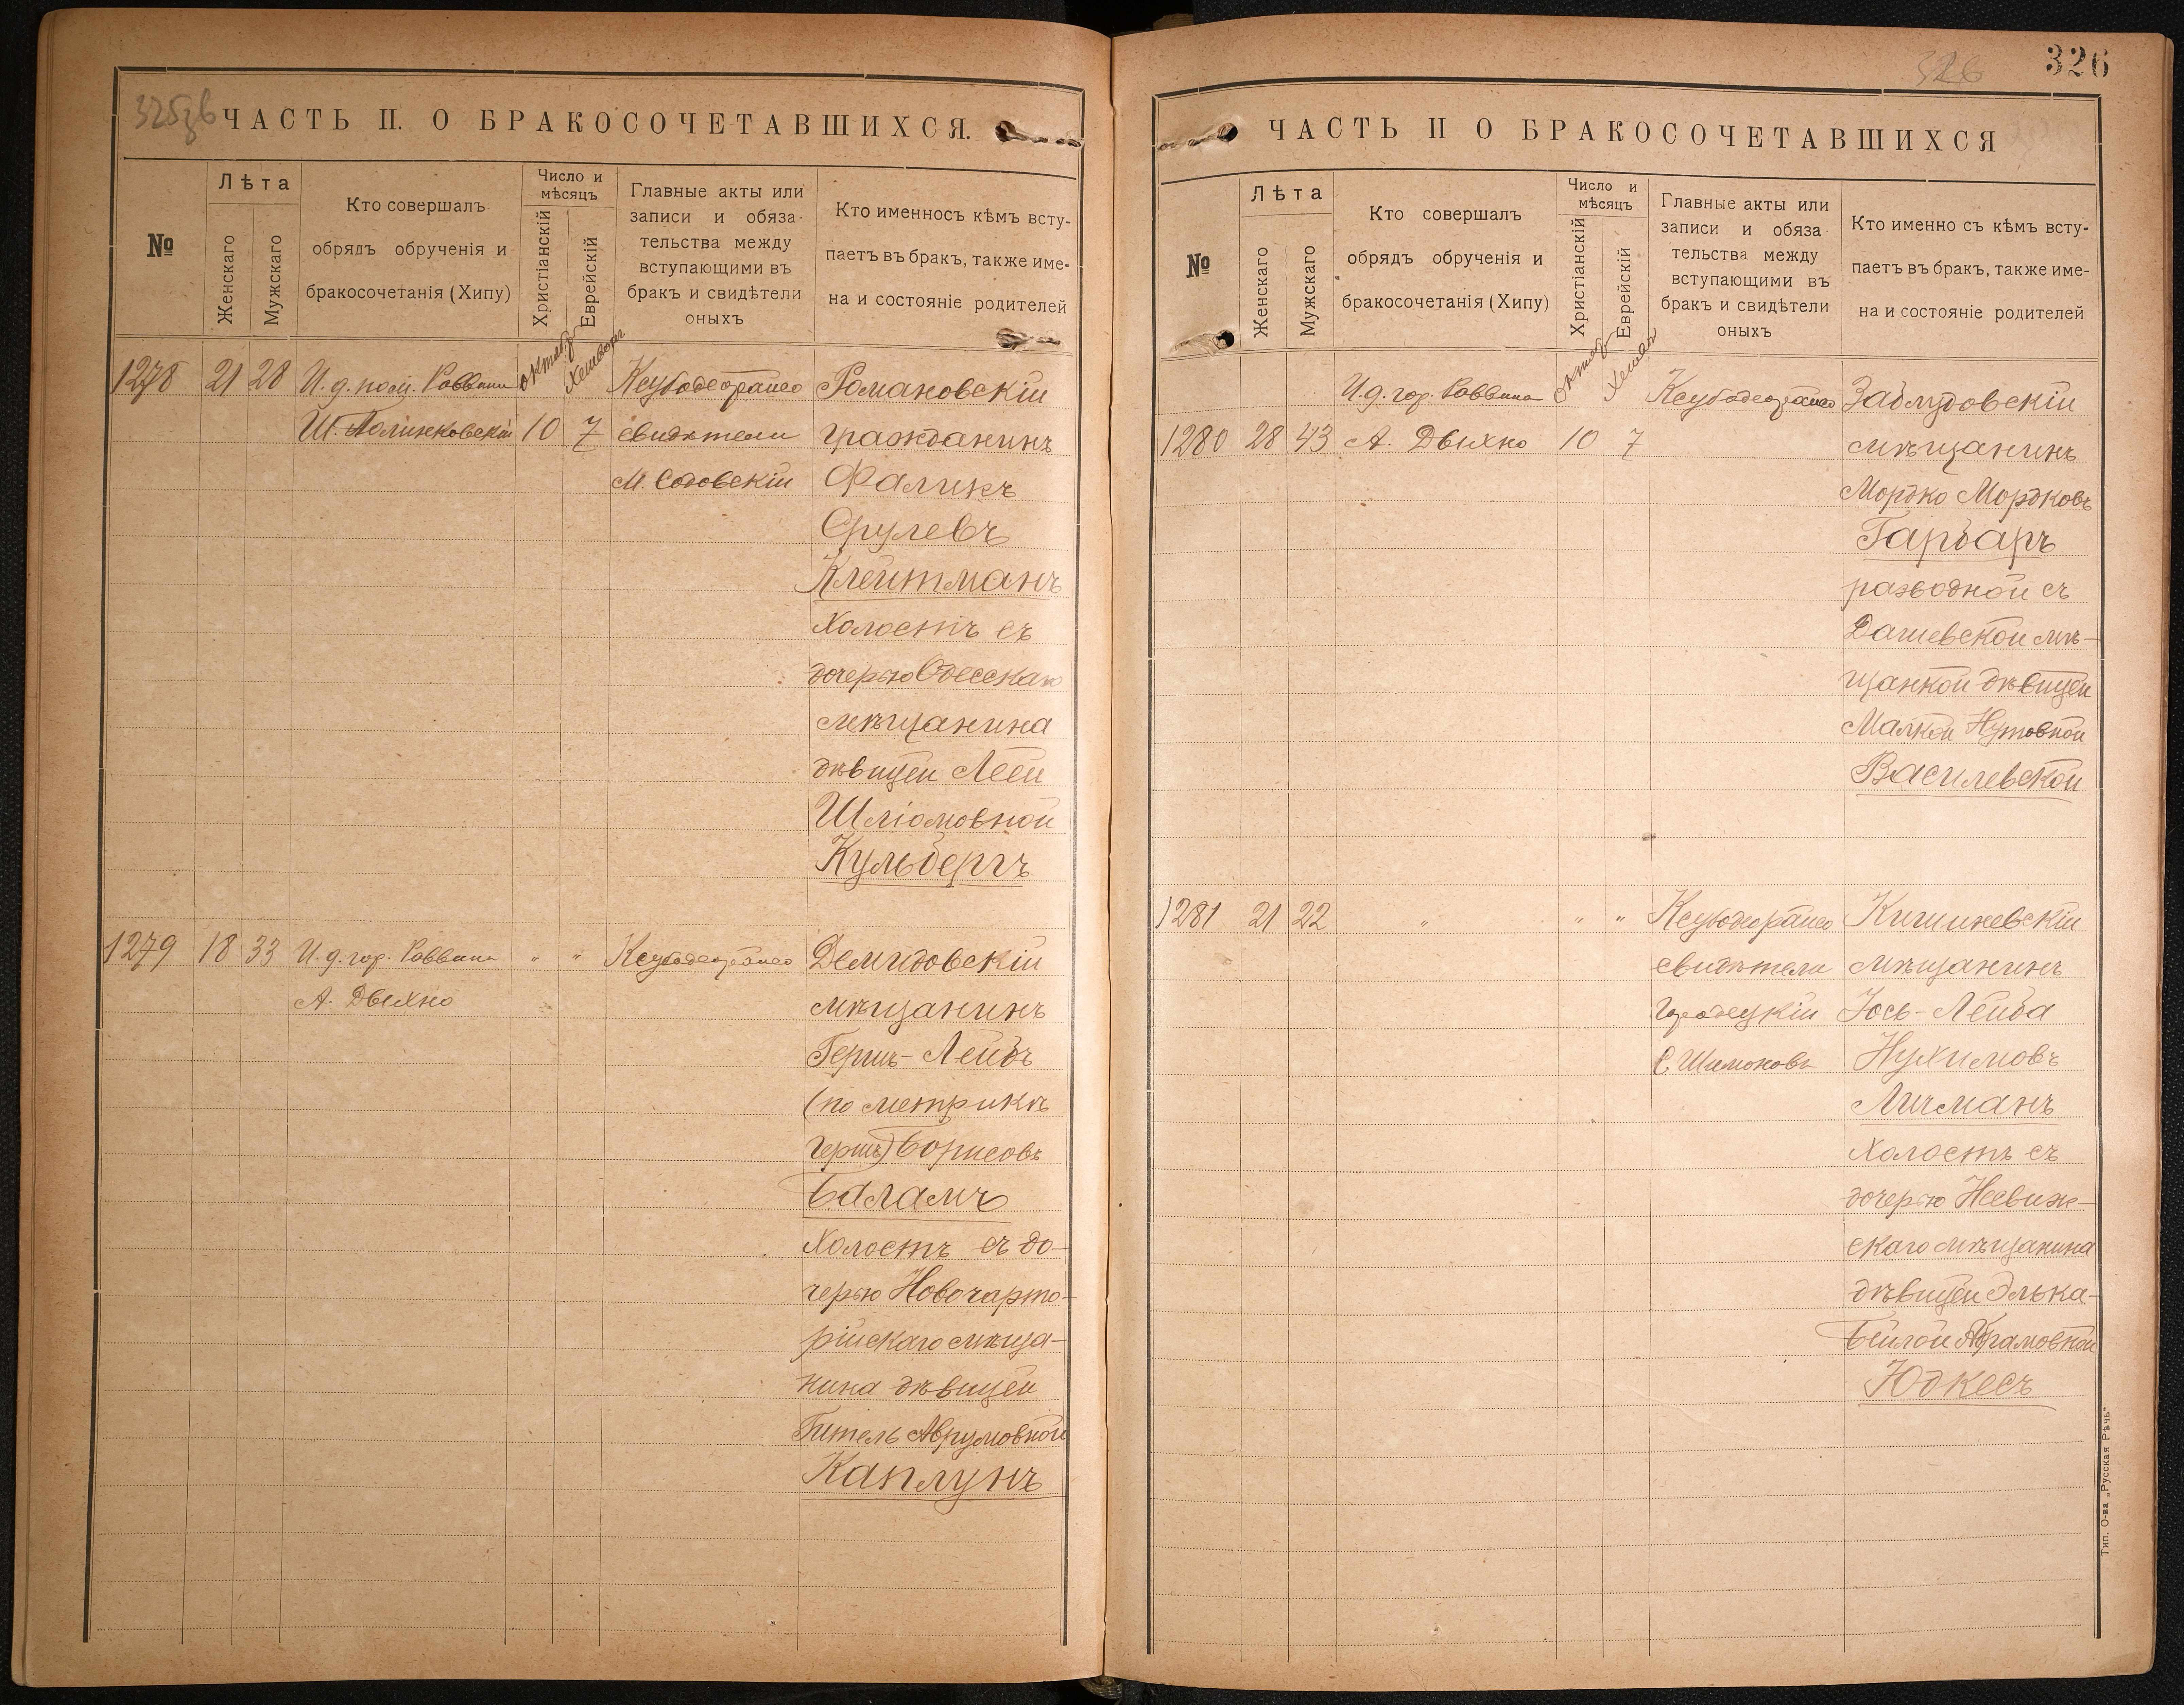 325зв
ЧАСТЬ II. О БРАКОСОЧЕТАВШИХСЯ.
№
Лѣта
Женскаго
Мужскаго
Кто совершалъ
обрядъ обрученія и
бракосочетанія (Хипу)
Число и
мѣсяцъ
Христіанскій
Еврейскій
Главные акты или
записи и обяза-
тельства между
вступающими въ
бракъ и свидѣтели
оныхъ
Кто именносъ кѣмъ всту-
паетъ въ бракъ, также име-
на и состояніе родителей
октяб
1278 21 28 И. д. Раввина Романовскій
Ш. 10 7 свидѣтели гражданинъ
М. Фаликъ
Срулевъ
Клейтманъ
холостъ съ
дочерью Одесскаго
мѣщанина
дѣвицей Леей
Шліомовной
Кульбергъ
1279 18 33 И. д. гор. Раввина " " Демидовскій
А. Двихно мѣщанинъ
Гершъ-Лейбъ
(по метрикѣ
Гершъ) Борисовъ
Баламъ
холостъ съ до-
черью Новочарто-
рійскаго мѣща-
нина дѣвицей
Гитель Аврумовной
Каплунъ
326
326
ЧАСТЬ II О БРАКОСОЧЕТАВШИХСЯ
№
Лѣта
Женскаго
Мужскаго
Кто совершалъ
обрядъ обрученія и
бракосочетанія (Хипу)
Число и
мѣсяцъ
Христіанскій
Еврейскій
Главные акты или
записи и обяза
тельства между
вступающими въ
бракъ и свидѣтели
оныхъ
Кто именно съ кѣмъ всту-
паетъ въ бракъ, также име-
на и состояніе родителей
октяб
И. д. гор. Раввина Заблудовскій
1280 28 43 А. Двихно 10 7 мѣщанинъ
Мордко Мордковъ
Гарбаръ
разводной съ
Дашевской мѣ-
щанкой дѣвицей
Малкой Нутовной
Василевской
1281 21 22 " " " Кишиневскій
свидѣтели мѣщанинъ
Городецкій Іось-Лейба
С Шимоновъ Нухимовъ
Личманъ
холостъ съ
дочерью Несвиж-
скаго мѣщанина
дѣвицей Элька-
Бейлой Абрамовной
Юдкесъ
Тип. О-ва „Русская Рѣчь"